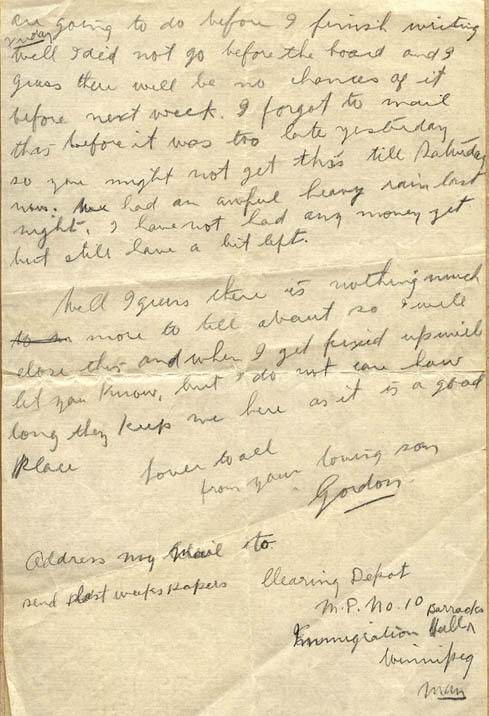 are going to do before I finish writing
Friday
Well I did not go before the board and I
guess there will be no chances of it
before next week. I forgot to mail
this before it was too late yesterday
so you might not get this till Saturday
now. We had an awful heavy rain last
night. I have not had any money yet
but still have a bit left.
Well I guess there is nothing much
more to tell about so I will
close this and when I get fixed up will
let you know, but I do not care how
long they keep me here as it is a good
place
Love to all
from your loving son
Gordon.
Address my Mail to
send last weeks papers
Clearing Depot
M.P. No. 10 Barracks
Immigration Hall
Winnipeg
Man